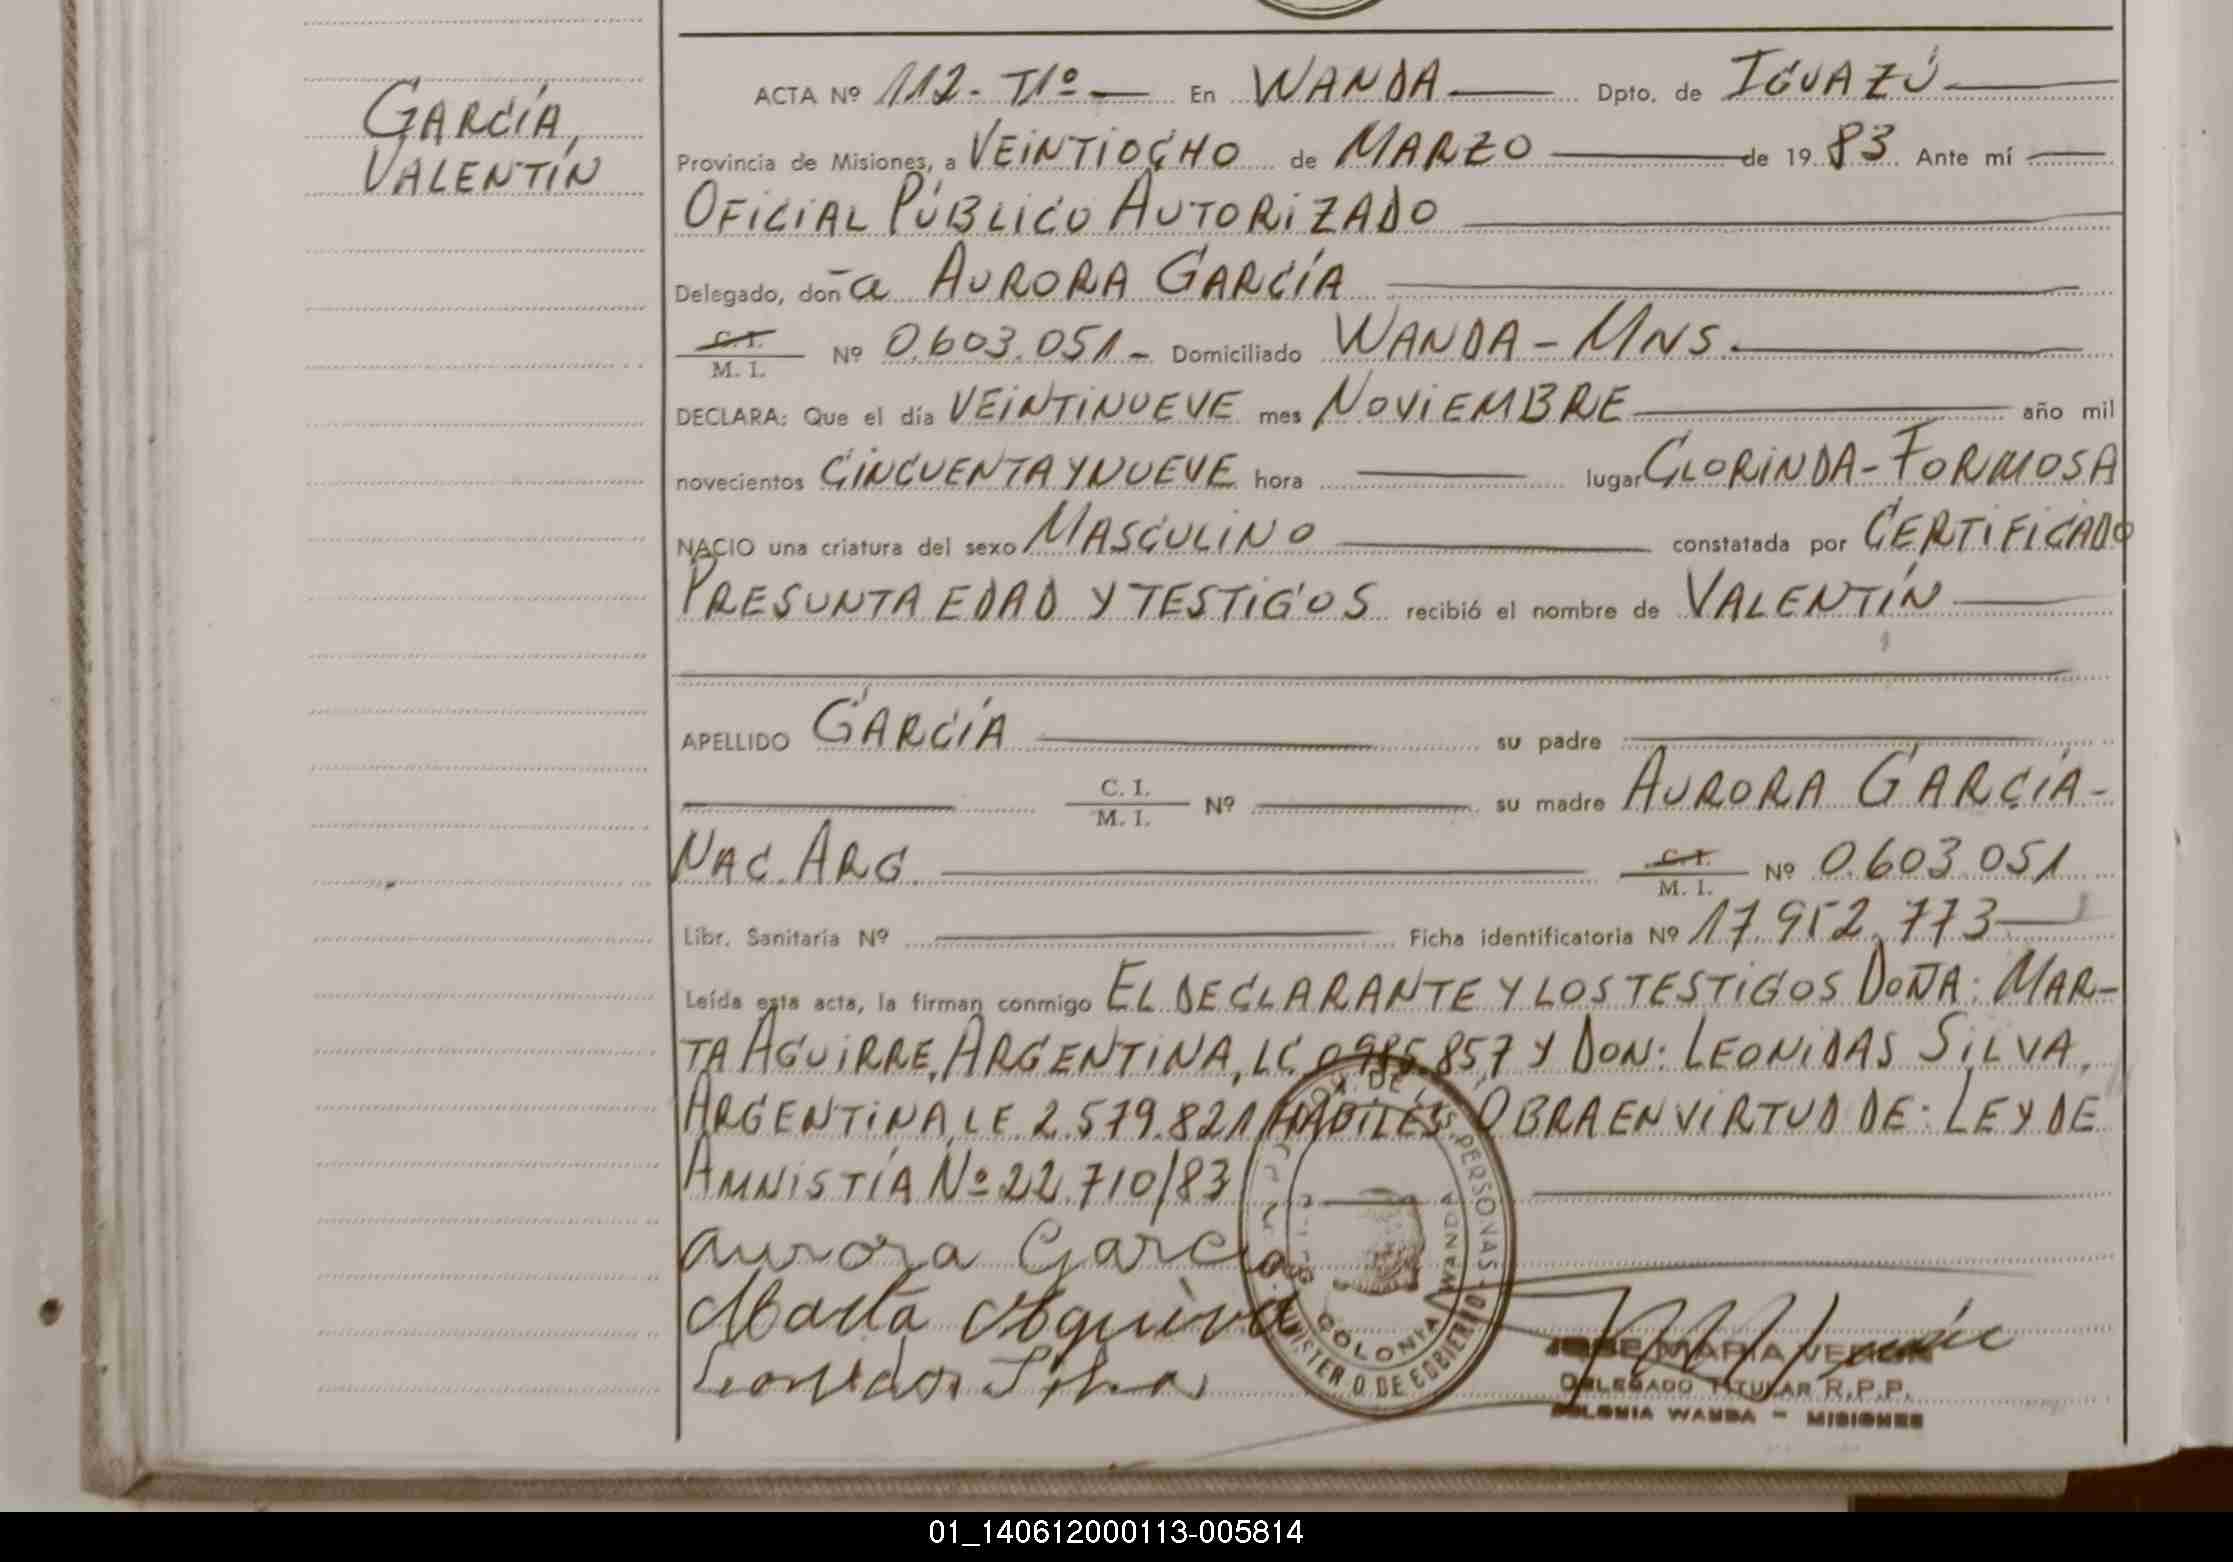 GARCÍA,
VALENTÍN
ACTA Nº 112- T1º- En WANDA Dpto. de IGUAZÚ
Provincia de Misiones, a VEINTIOCHO de MARZO de 1983 Ante mí
OFICIAL PÚBLICO AUTORIZADO
Delegado, doña AURORA GARCÍA
C. I. / M. I. Nº 0.603.051- Domiciliado WANDA - MNS.
DECLARA: Que el día VEINTINUEVE mes NOVIEMBRE año mil
novecientos CINCUENTA Y NUEVE hora lugar CLORINDA - FORMOSA
NACIO una criatura del sexo MASCULINO constatada por CERTIFICADO
PRESUNTA EDAD Y TESTIGOS recibió el nombre de VALENTÍN
APELLIDO GARCÍA su padre
C. I. / M. I. Nº su madre AURORA GARCÍA-
NAC. ARG. C. I. / M. I. Nº 0.603.051
Libr. Sanitaria Nº Ficha identificatoria Nº 17.952.773
Leída esta acta, la firman conmigo EL DECLARANTE Y LOS TESTIGOS DOÑA: MAR-
TA AGUIRRE, ARGENTINA, LC 0985.857 Y DON: LEONIDAS SILVA,
ARGENTINA, LE. 2.579.821 HABILES. OBRA EN VIRTUD DE: LEY DE
AMNISTÍA Nº 22.710/83
Aurora Garcia
Marta Aguirre
Leonidas Silva
DE LAS PERSONAS
COLONIA WANDA
MINISTERIO DE GOBIERNO
JOSE MARIA VERON
DELEGADO TITULAR R.P.P.
COLONIA WANDA - MISIONES
01_140612000113-005814